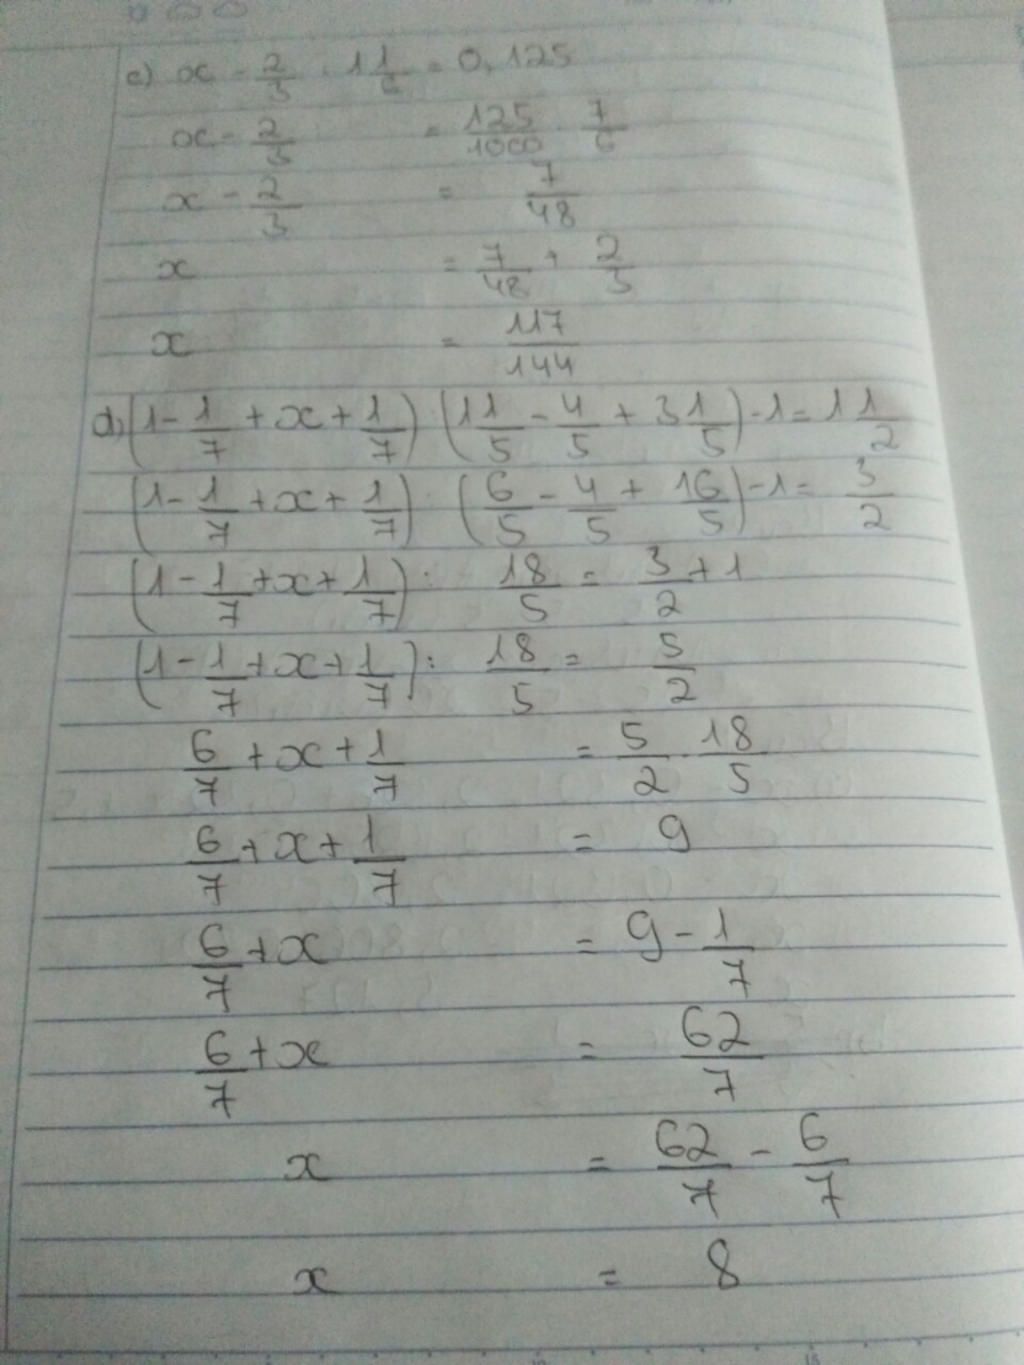 c) x - 2/3 : 1 1/6 = 0,125
x - 2/3 = 125/1000 · 7/6
x - 2/3 = 7/48
x = 7/48 + 2/3
x = 117/144
d) (1 - 1/7 + x + 1/7) : (1 1/5 - 4/5 + 3 1/5) - 1 = 1 1/2
(1 - 1/7 + x + 1/7) : (6/5 - 4/5 + 16/5) - 1 = 3/2
(1 - 1/7 + x + 1/7) : 18/5 = 3/2 + 1
(1 - 1/7 + x + 1/7) : 18/5 = 5/2
6/7 + x + 1/7 = 5/2 · 18/5
6/7 + x + 1/7 = 9
6/7 + x = 9 - 1/7
6/7 + x = 62/7
x = 62/7 - 6/7
x = 8